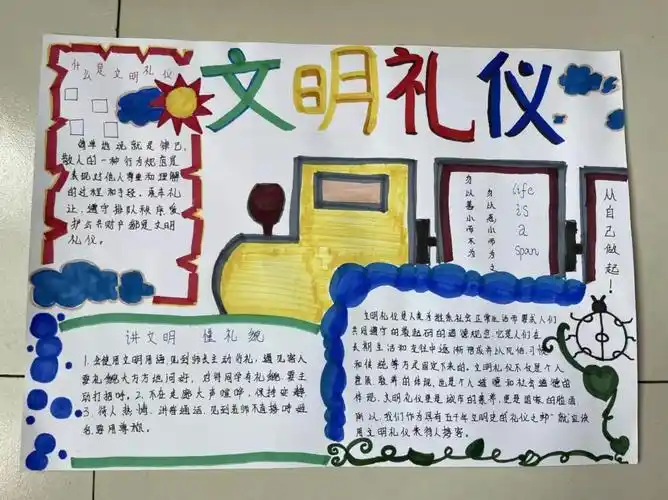 文明礼仪
什么是文明礼仪
简单地说就是律己,
敬人的一种行为规范是
表现对他人尊重和理解
的过程和手段。庸车礼
让,遵守排队秩序爱
护公共财产都是文明
礼仪。
勿以善小而不为
勿以恶小而为之
life
is
a
span
从自己做起!
讲文明 懂礼貌
1.会使用文明用语,见到师长主动问礼,遇见客人
要礼貌大方地问好,对待同学有礼貌要主
动打招呼。2.不在走廊大声喧哗,保持安静
3.待人热情,讲普通话,见到老师不直接呼姓
名要用尊称。
文明礼仪是人类为维系社会正常生活而要求人们
共同遵守的最起码的道德规范,它是人们在
长期生活和交往中逐渐形成并以风俗、习惯
和传统等方式固定下来的。文明礼仪不仅是个人
素质、教养的体现,也是个人道德和社会道德的
体现。文明礼仪更是城市的素养,更是国家的脸面
所以,我们作为具有五千年文明史的礼仪之邦"就应该
用文明礼仪来待人接客。